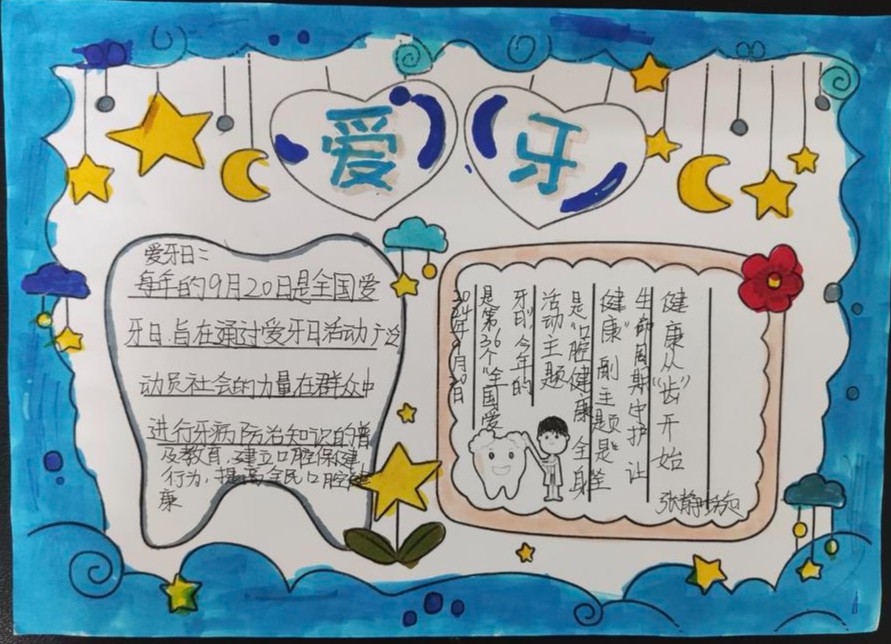 爱牙
爱牙日:
每年的9月20日是全国爱
牙日.旨在通过爱牙日活动广泛
动员社会的力量在群众中
进行牙病防治知识的普
及教育,建立口腔保健
行为,提高全民口腔健
康
2024年9月20日
是第36个“全国爱
牙日”,今年的
活动主题
是“口腔健康 全身
健康”副主题是:“全
生命周期守护 让
健康从“齿”开始
张静